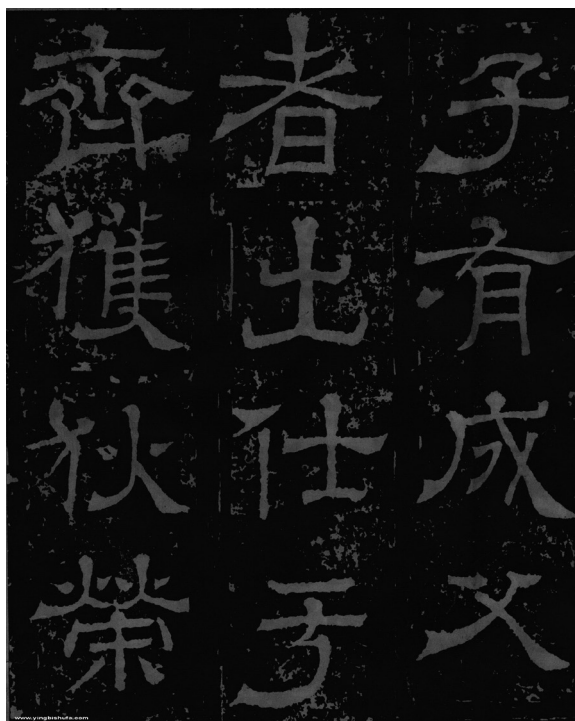 子有成父
者出仕于
齊獲狄榮
www.yingbishufa.com